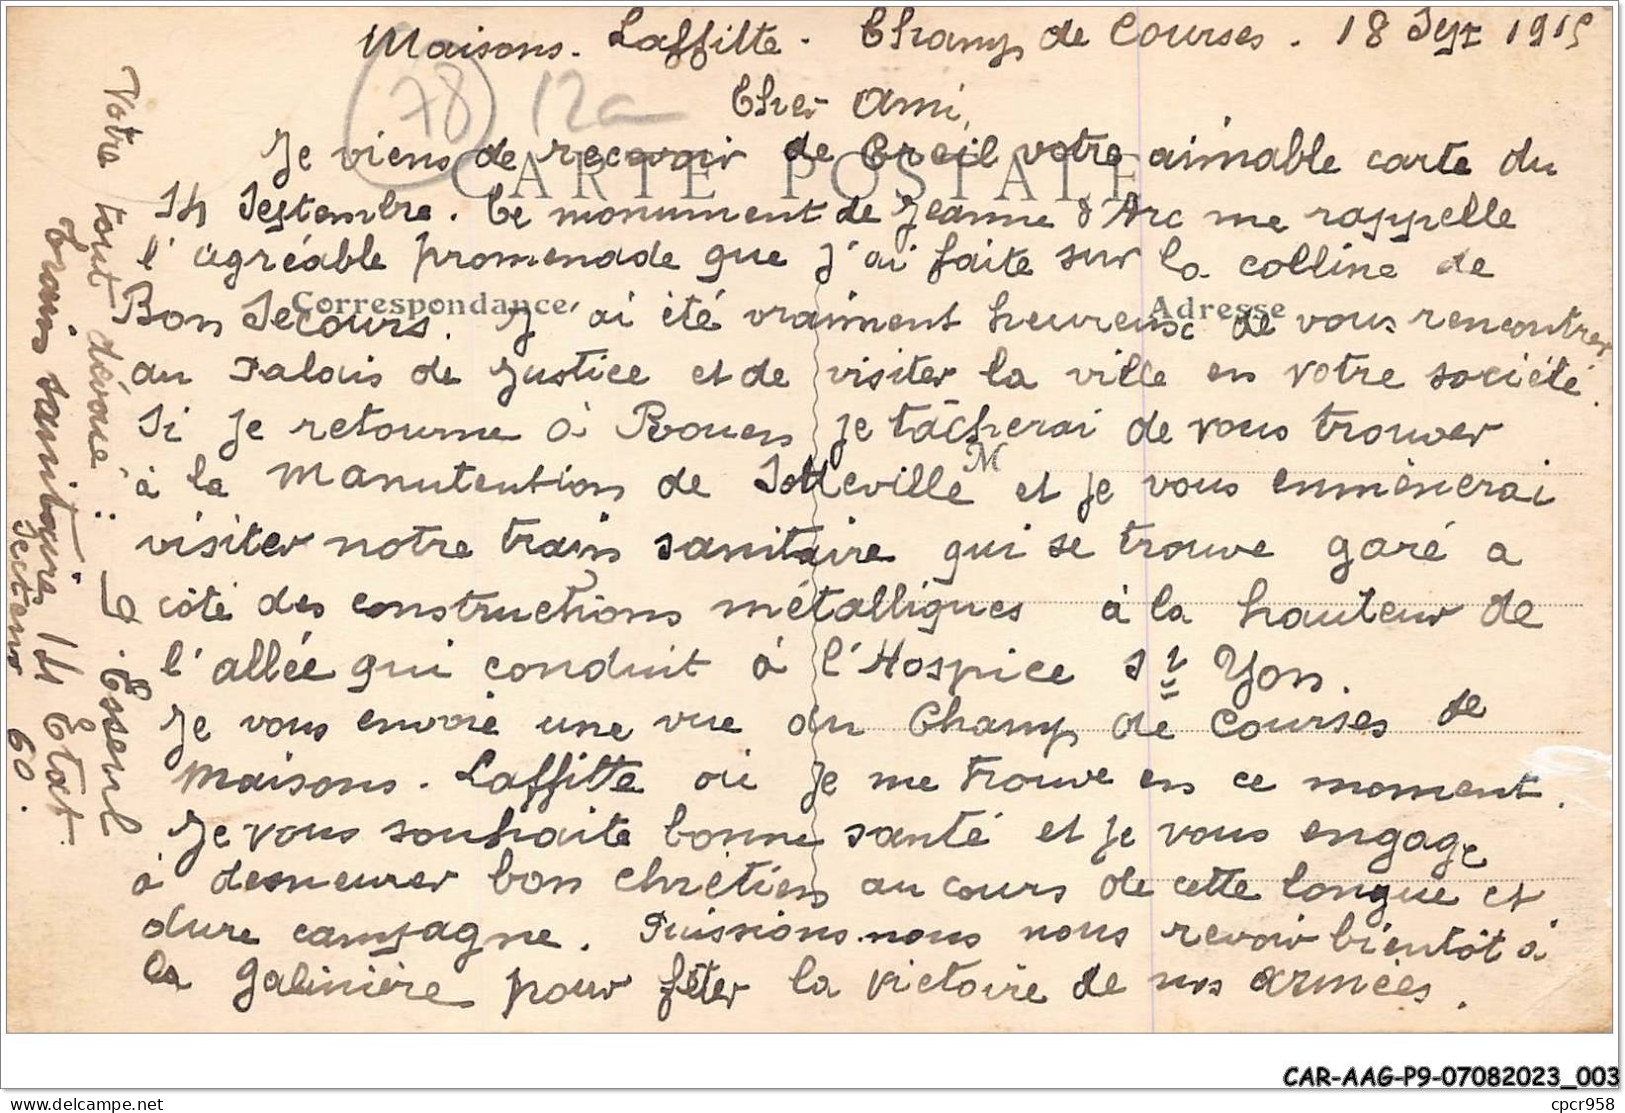 Maisons-Laffitte. Champ de Courses. 18 Sept 1915
78 12a
Cher Ami,
CARTE POSTALE
Je viens de recevoir de Creil votre aimable carte du
14 Septembre. Ce monument de Jeanne d'Arc me rappelle
l'agréable promenade que j'ai faite sur la colline de
Correspondance Adresse
Bon Secours. J'ai été vraiment heureux de vous rencontrer
au Palais de Justice et de visiter la ville en votre société.
Si je retourne à Rouen je tâcherai de vous trouver
à la manutention de Sotteville et je vous emmènerai
M
visiter notre train sanitaire qui se trouve garé a
côté des constructions métalliques à la hauteur de
l'allée qui conduit à l'Hospice St Yon.
Je vous envoie une vue du Champ de Courses de
Maisons-Laffitte où je me trouve en ce moment.
Je vous souhaite bonne santé et je vous engage
à demeurer bon chrétien au cours de cette longue et
dure campagne. Puissions-nous nous revoir bientôt à
la Galinière pour fêter la victoire de nos armées.
Votre tout dévoué :
Train sanitaire 14 Etat
Secteur 60.
CAR-AAG-P9-07082023_003
delcampe.net
cpcr958